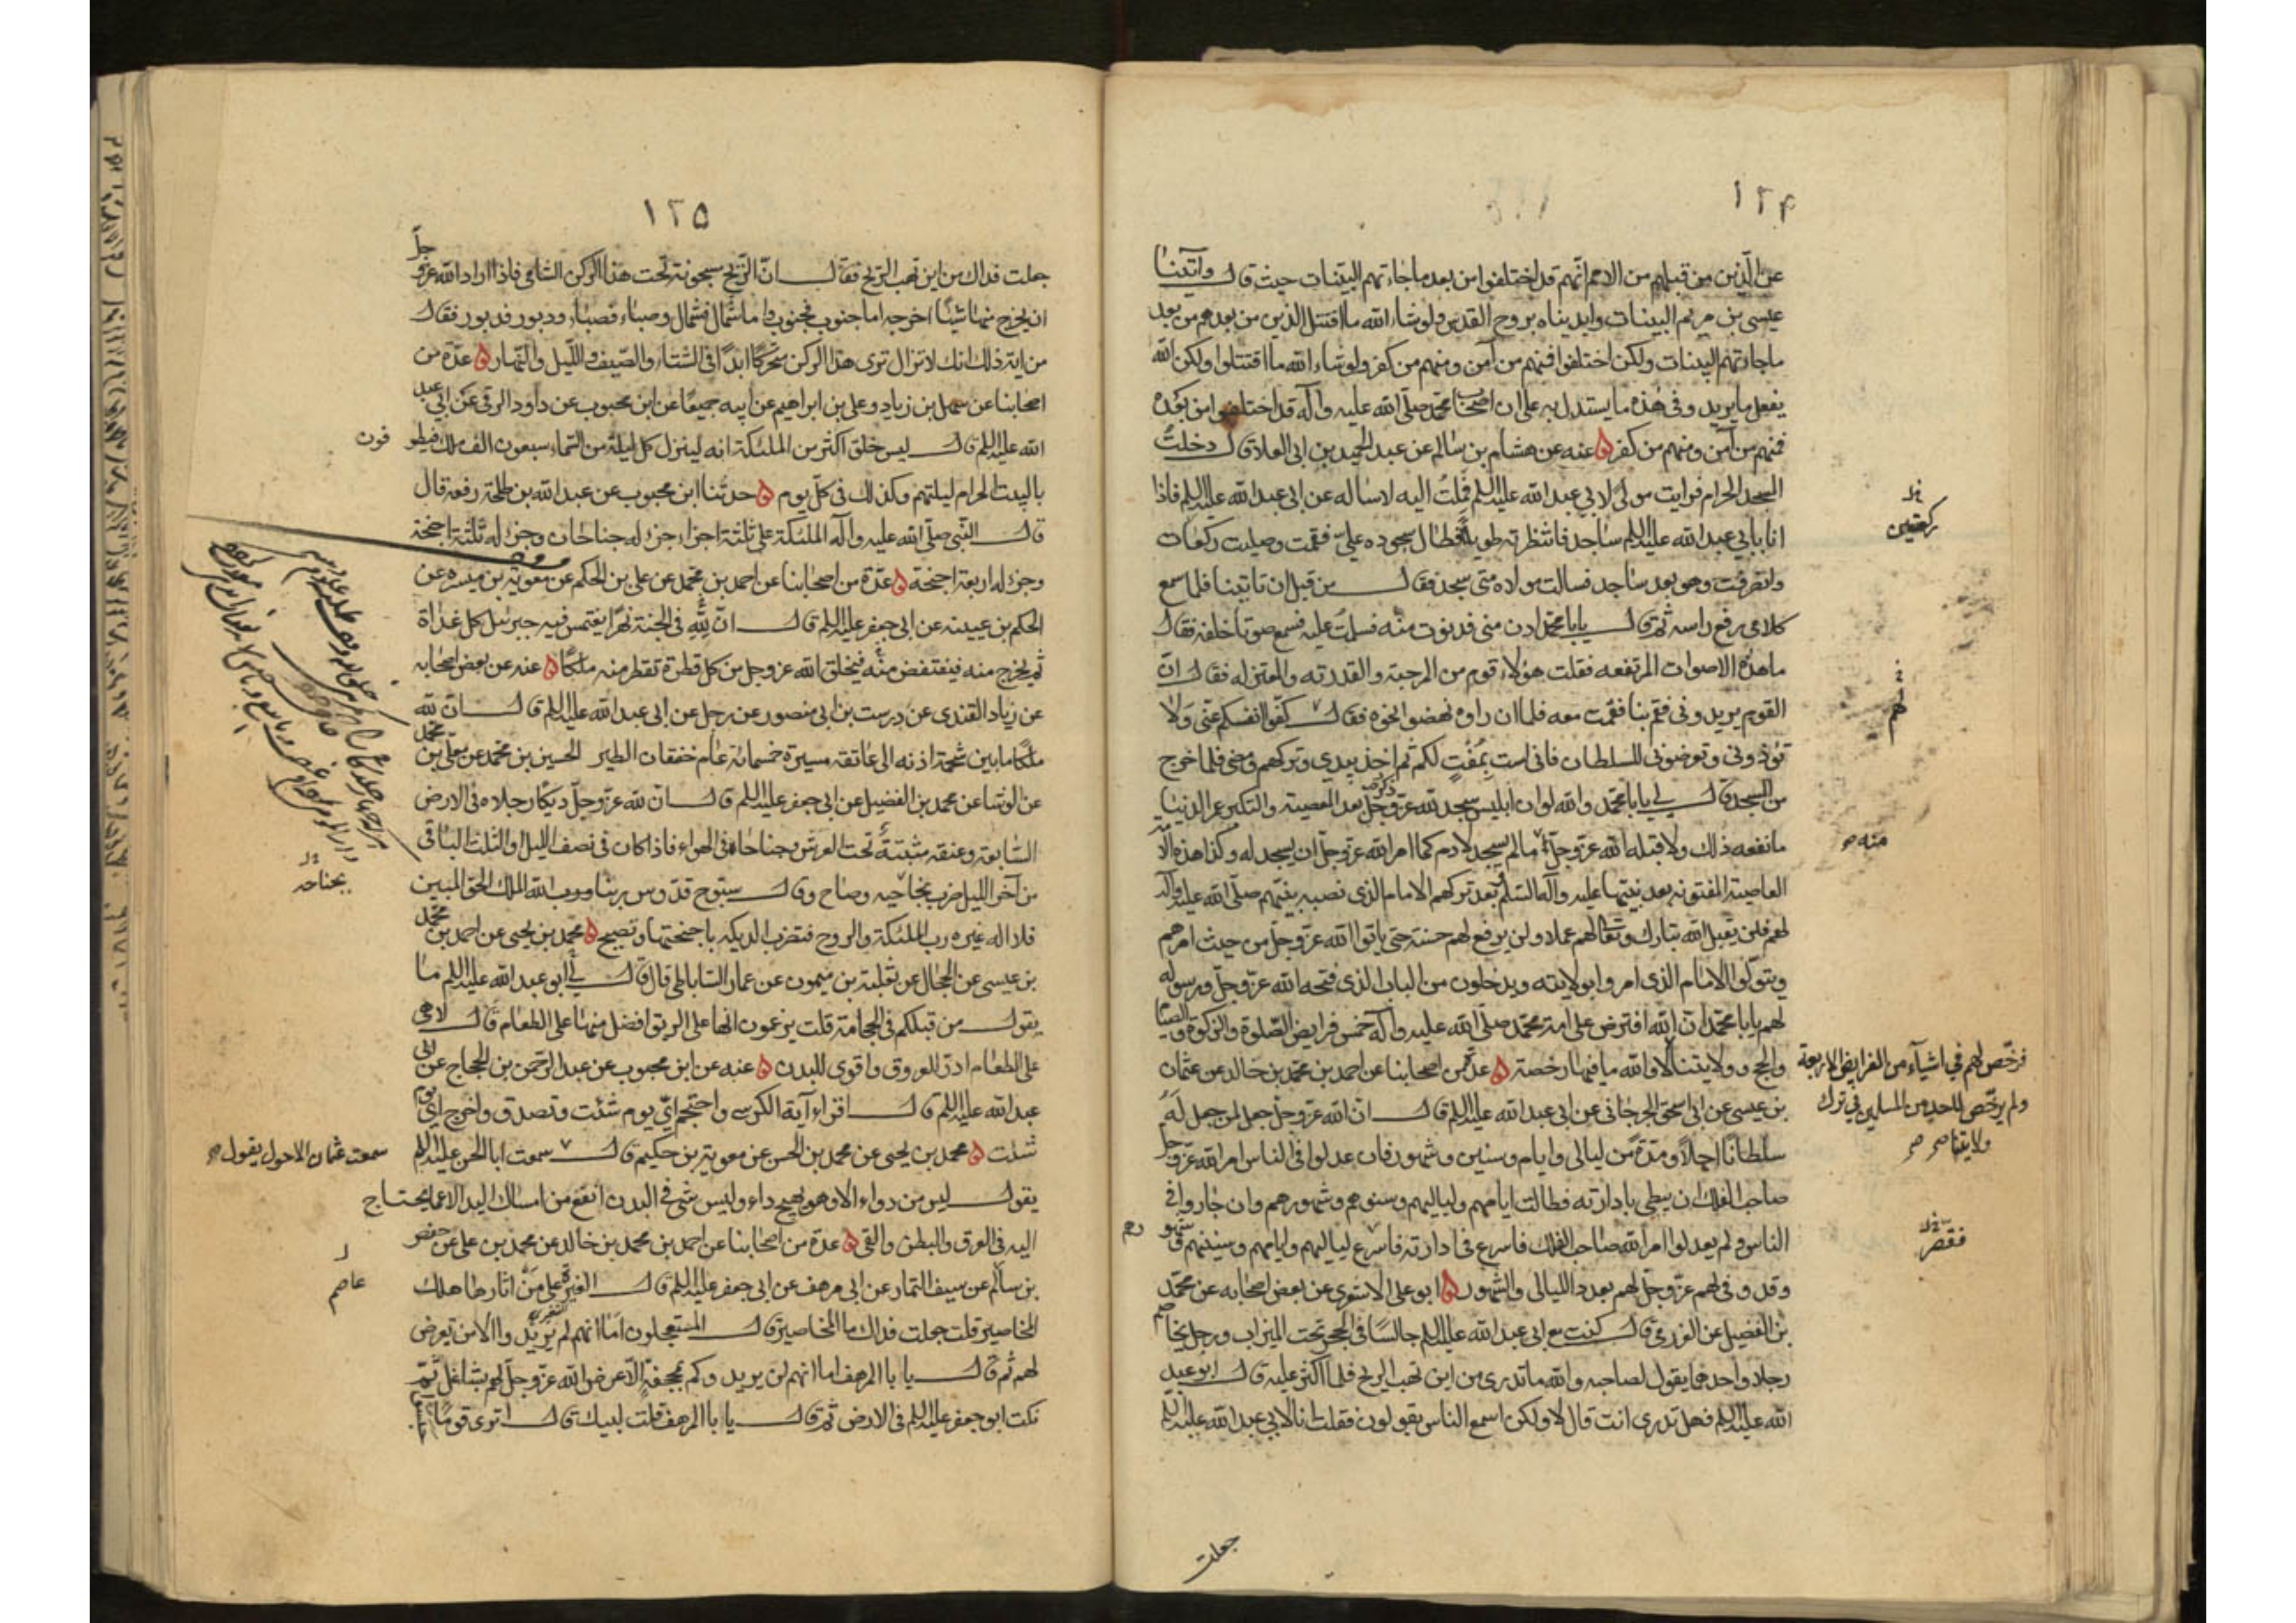 ١٢۴
عن الذين من قبلهم من الامم انهم قد اختلفوا من بعد ما جاءتهم البينات حيث قال وآتينا
عيسى بن مريم البينات وايدناه بروح القدس ولو شاء الله ما اقتتل الذين من بعدهم من بعد
ما جاءتهم البينات ولكن اختلفوا فمنهم من آمن ومنهم من كفر ولو شاء الله ما اقتتلوا ولكن الله
يفعل ما يريد وفى هذه ما يستدل به على ان اصحاب محمد صلى الله عليه وآله قد اختلفوا من بعده
فمنهم من آمن ومنهم من كفر ه عنه عن هشام بن سالم عن عبد الحميد بن ابى العلا قال دخلت
المسجد الحرام فرايت مولى لابي عبد الله عليه السلم فملت اليه لاساله عن ابى عبد الله عليه السلم فاذا
انا بابي عبد الله عليه السلم ساجد فانتظرته طويلا فطال سجوده علي فقمت وصليت ركعات
وانصرفت وهو بعد ساجد فسالت مولاه متى سجد فقال من قبل ان تاتينا فلما سمع
كلامى رفع راسه ثم قال يا با محمد ادن منى فدنوت منه فسلمت عليه فسمع صوتا خلفه فقال
ما هذه الاصوات المرتفعه فقلت هؤلاء قوم من المرجئة والقدرته والمعتزله فقال ان
القوم يريدونى فقم بنا فقمت معه فلما ان راوه نهضوا نحوه فقال كفوا انفسكم عنى ولا
تؤذونى وتعرضونى للسلطان فانى لست بمفت لكم ثم اخذ بيدي وتركهم ومضى فلما خرج
من المسجد قال لي يا با محمد والله لو ان ابليس سجد لله عز وجل بعد المعصية والتكبر عمر الدنيا
ما نفعه ذلك ولا قبله الله عز وجل ما لم يسجد لادم كما امر الله عز وجل ان يسجد له وكذا هذه الامة
العاصية المفتونه بعد نبيها عليه وآله السلم بعد تركهم الامام الذى نصبه نبيهم صلى الله عليه وآله
لهم فلن يقبل الله تبارك وتعالى لهم عملا ولن يرفع لهم حسنة حتى ياتوا الله عز وجل من حيث امرهم
ويتولوا الامام الذى امروا بولايته ويدخلون من الباب الذى فتحه الله عز وجل ورسوله
لهم يا با محمد ان الله افترض على امة محمد صلى الله عليه وآله خمس فرايض الصلوة والزكوة والصيام
والحج وولايتنا لا والله ما فيها رخصة ه عدة من اصحابنا عن احمد بن محمد بن خالد عن عثمان
بن عيسى عن ابى اسحق الجرجانى عن ابى عبد الله عليه السلم قال ان الله عز وجل جعل لمن جعل له
سلطانا اجلا ومدة من ليالى وايام وسنين وشهور فان عدلوا فى الناس امر الله عز وجل
صاحب الفلك ان يبطى بادارته فطالت ايامهم ولياليهم وسنوهم وشهورهم وان جاروا في
الناس ولم يعدلوا امر الله صاحب الفلك فاسرع فى ادارته فاسرع لياليهم وايامهم وسنينهم وشهورهم
وقد وفى لهم عز وجل لهم بعدد الليالى والشهور ه ابو على الاشعري عن بعض اصحابه عن محمد
بن الفضيل عن العرزمى قال كنت مع ابى عبد الله عليه السلم جالسا فى الحجر تحت الميزاب ورجل يخاصم
رجلا واحدهما يقول لصاحبه والله ما تدرى من اين تهب الريح فلما اكثر عليه قال ابو عبد
الله عليه السلم فهل تدرى انت قال لا ولكن اسمع الناس يقولون فقلت انا لابي عبد الله عليه السلم
جعلت
ركعتين
لهم
منه
فرخص لهم في اشياء من الفرايض الاربعة
ولم يرخص لاحد من المسلمين في ترك
ولايتنا
فقصر
١٢٥
جعلت فداك من اين تهب الريح فقال ان الريح مسجونة تحت هذا الركن الشامى فاذا اراد الله عز وجل
ان يخرج منها شيئا اخرجه اما جنوب فجنوب واما شمال فشمال وصباء فصباء ودبور فدبور فقال
من اية ذلك انك لا تزال ترى هذا الركن متحركا ابدا فى الشتاء والصيف والليل والنهار ه عدة من
اصحابنا عن سهل بن زياد وعلى بن ابراهيم عن ابيه جميعا عن ابن محبوب عن داود الرقى عن ابى عبد
الله عليه السلم قال ليس خلق اكثر من الملئكة انه لينزل كل ليلة من السماء سبعون الف ملك فيطوفون
بالبيت الحرام ليلتهم وكذلك فى كل يوم ه حدثنا ابن محبوب عن عبد الله بن طلحة رفعه قال
قال النبى صلى الله عليه وآله الملئكة على ثلثة اجزاء جزء له جناحان وجزء له ثلثة اجنحة
وجزء له اربعة اجنحة ه عدة من اصحابنا عن احمد بن محمد عن على بن الحكم عن معوية بن ميسره عن
الحكم بن عيينه عن ابى جعفر عليه السلم قال ان لله فى الجنة نهرا يغتمس فيه جبرئيل كل غداة
ثم يخرج منه فينتفض منه فيخلق الله عز وجل من كل قطرة تقطر منه ملكا ه عنه عن بعض اصحابه
عن زياد القندى عن درست بن ابى منصور عن رجل عن ابى عبد الله عليه السلم قال ان لله
ملكا ما بين شحمة اذنه الى عاتقه مسيرة خمسمائة عام خفقان الطير الحسين بن محمد عن معلى بن محمد
عن الوشا عن محمد بن الفضيل عن ابى جعفر عليه السلم قال ان لله عز وجل ديكا رجلاه فى الارض
السابعة وعنقه مثبتة تحت العرش وجناحاه فى الهواء فاذا كان فى نصف الليل او الثلث الباقى
من آخر الليل ضرب بجناحيه وصاح وقال سبوح قدوس ربنا ورب الله الملك الحق المبين
فلا اله غيره رب الملئكة والروح فتضرب الديكه باجنحتها وتصيح ه محمد بن يحيى عن احمد بن محمد
بن عيسى عن الحجال عن ثعلبة بن ميمون عن عمار الساباطى قال قال لي ابو عبد الله عليه السلم ما
يقول من قبلكم فى الحجامة قلت يزعمون انها على الريق افضل منها على الطعام قال لا هى
على الطعام ادر للعروق واقوى للبدن ه عنه عن ابن محبوب عن عبد الرحمن بن الحجاج عن ابى
عبد الله عليه السلم قال اقراء آية الكرسى واحتجم اي يوم شئت وتصدق واخرج اي يوم
شئت ه محمد بن يحيى عن محمد بن الحسن عن معوية بن حكيم قال سمعت ابا الحسن عليه السلم
يقول ليس من دواء الا وهو يهيج داء وليس شى فى البدن انفع من امساك اليد الا عما يحتاج
اليه فى العرق والبطن والقى ه عدة من اصحابنا عن احمد بن محمد بن خالد عن محمد بن على عن حفص
بن سالم عن سيف التمار عن ابى مرهف عن ابى جعفر عليه السلم قال الغبرة على من اثارها هلك
المحاصير قلت جعلت فداك ما المحاصير قال المستعجلون اما انهم لم يريدوا الا من تعرض
لهم ثم قال يا با المرهف اما انهم لن يريدوكم بمجحفة الا عرض الله عز وجل لهم بشاغل ثم
نكت ابو جعفر عليه السلم فى الارض ثم قال يا با المرهف قلت لبيك قال اترى قوما
بجناحه
سمعت عثمان الاحول يقول
عاصم